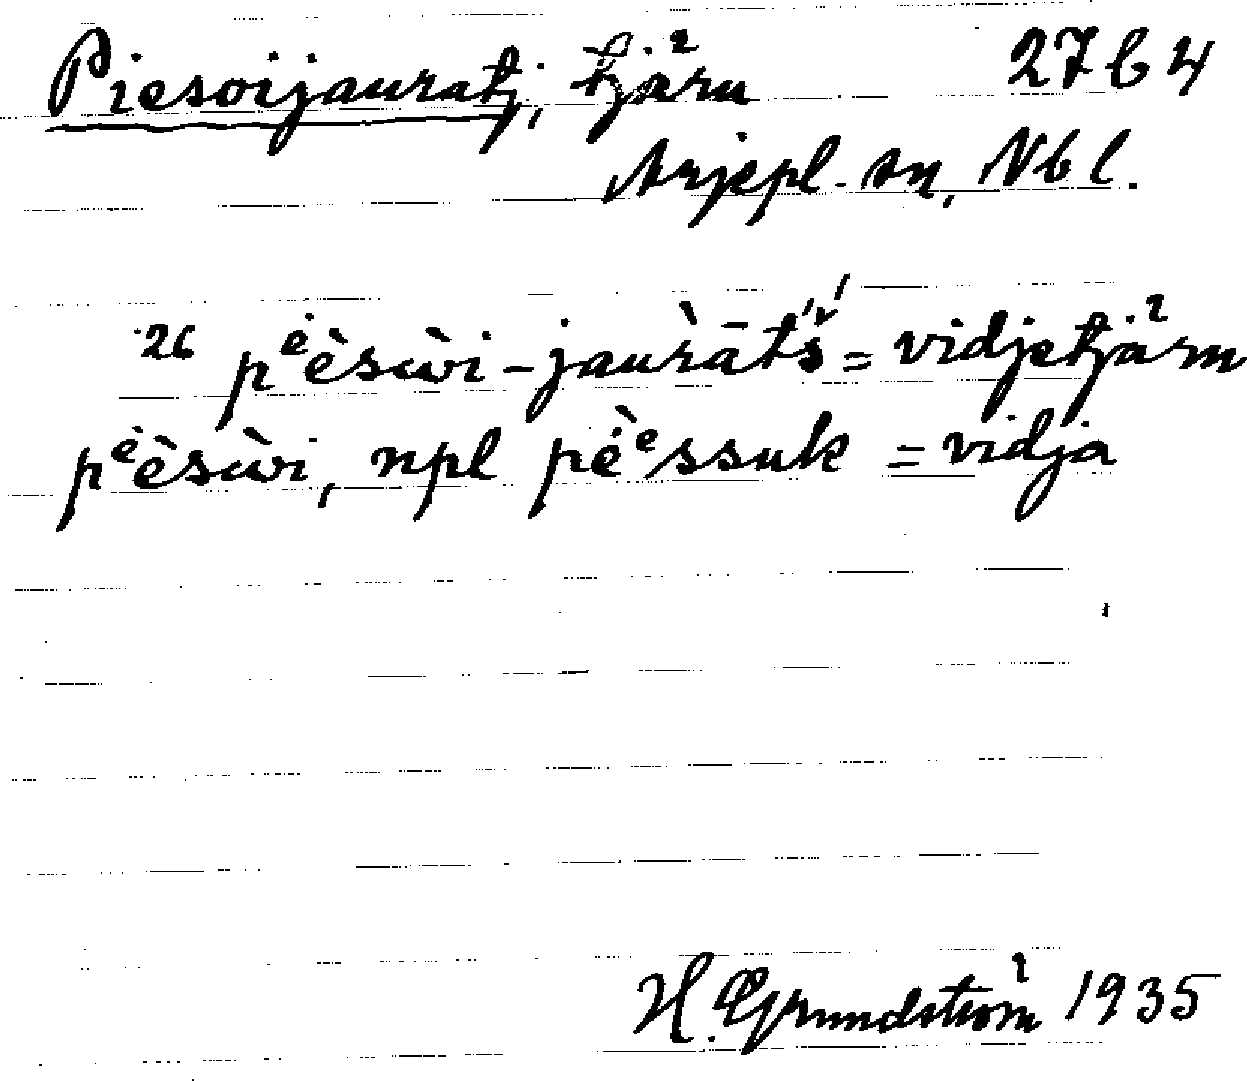 Piesoijauratj, tjärn 27 b 4
Arjepl. sn, Nbl.
26 pᵉèsùi-jauràtš́ = vidjetjärn
pᵉèsùi, npl péᵉssuk = vidja
H. Grundström 1935